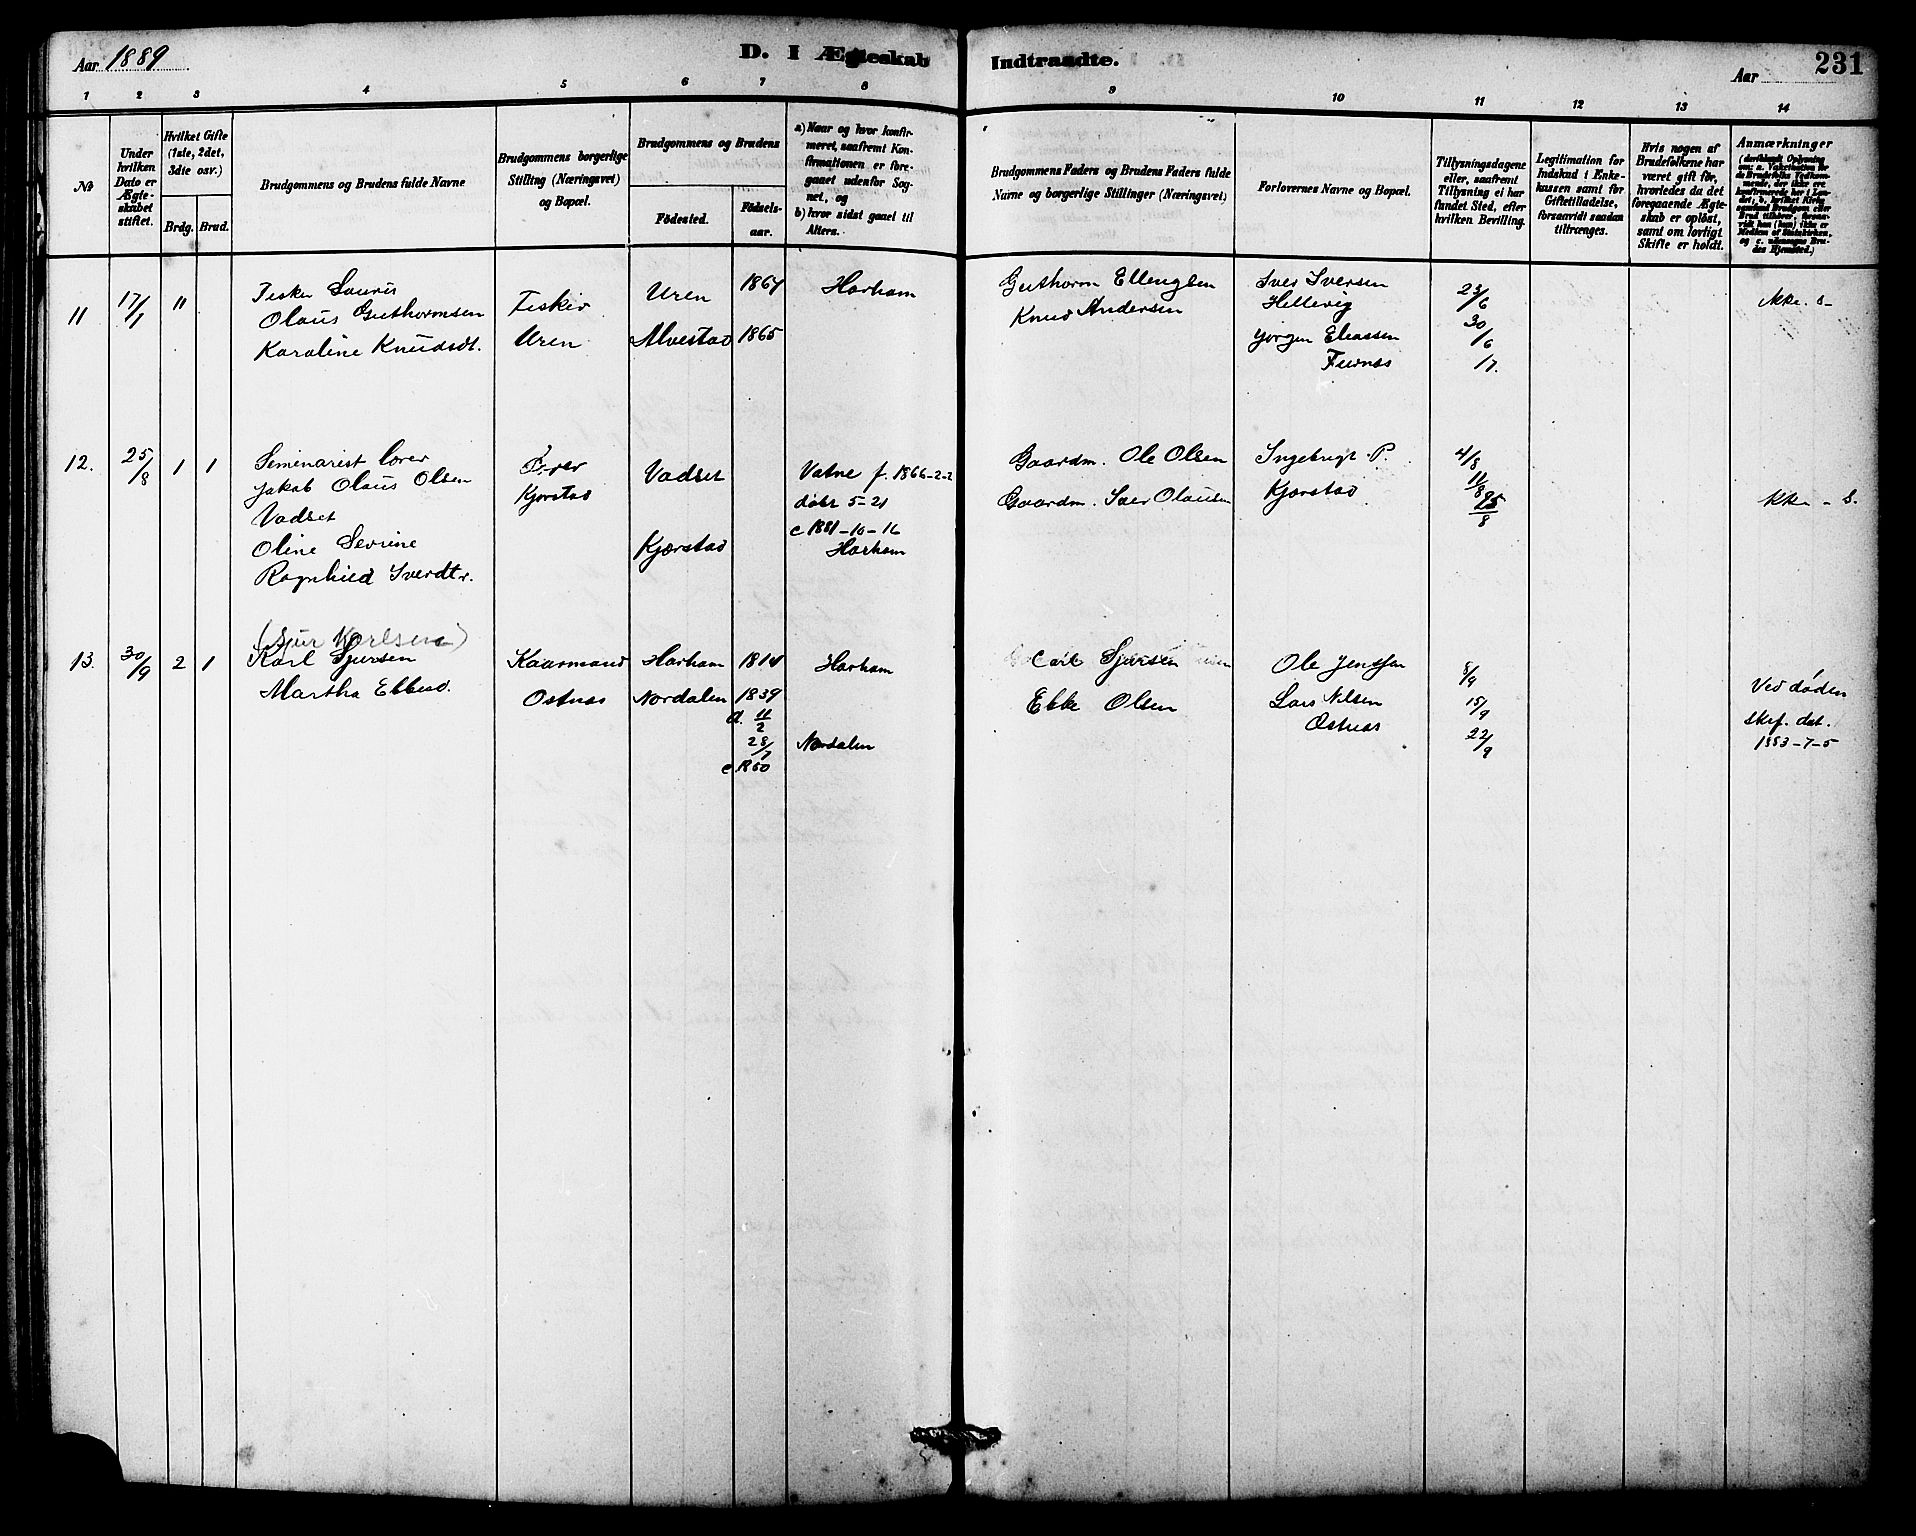 Aar 1889
D. I Ægteskab Indtraadte.
Aar
231
1 2 3 4 5 6 7 8 9 10 11 12 13 14
№
Under hvilken Dato er Ægteskabet stiftet.
Hvilket Gifte (1ste, 2det, 3die osv.)
Brdg. Brud.
Brudgommens og Brudens fulde Navne
Brudgommens borgerlige Stilling (Næringsvei) og Bopæl.
Brudgommens og Brudens
Fødested.
Fødselsaar.
a) Naar og hvor konfirmeret, saafremt Konfirmationen er foregaaet udenfor Sognet, og
b) hvor sidst gaaet til Alters.
Brudgommens Faders og Brudens Faders fulde Navne og borgerlige Stillinger (Næringsvei)
Forlovernes Navne og Bopæl.
Tillysningsdagene eller, saafremt Tillysning ei har fundet Sted, efter hvilken Bevilling.
Legitimation for Indskud i Enkekassen samt for Giftetilladelse, forsaavidt saadan tiltrænges.
Hvis nogen af Brudefolkene har været gift før, hvorledes da det foregaaende Ægteskab er opløst, samt om lovligt Skifte er holdt.
Anmærkninger
11 17/1 11
Fisker Lauris
Olaus Guthormsen
Karoline Knudsdt.
Fisker
Uren
Uren 1864
Alvestad 1865
Harham
Guthorm Ellengsen
Knud Andersen
Iver Iversen
Hellevig
Jørgen Eliassen
Fuernes
23/6
30/6
1/7.
Ikke. s-
12. 25/8 1 1
Seminarist Lærer
Jakob Olaus Olsen
Vadset
Oline Severine
Ragnhild Iversdtr.
Kjørstad
Vadset
Kjørstad
Vatne f. 1866-2-2
døbt 5-21
c 1881-10-16
Harham
Gaardm. Ole Olsen
Gaardm. Iver Olausen
Ingebrigt P.
Kjørstad
4/8
11/8
25/8
Ikke - s.
(Sjur Karlsen)
13. 30/9 2 1
Karl Sjursen
Martha Ebbesd.
Kaarmand
Ostnes
Harham 1814
Nordalen 1839
d 11/2
28/7
c 1850
Harham
Nordalen
Carl Sjursen
Ebbe Olsen
Ole Jenssen
Lars Nilsen
Ostnes
8/9
15/9
22/9
Ved døden
skif. dat.
1883-7-5